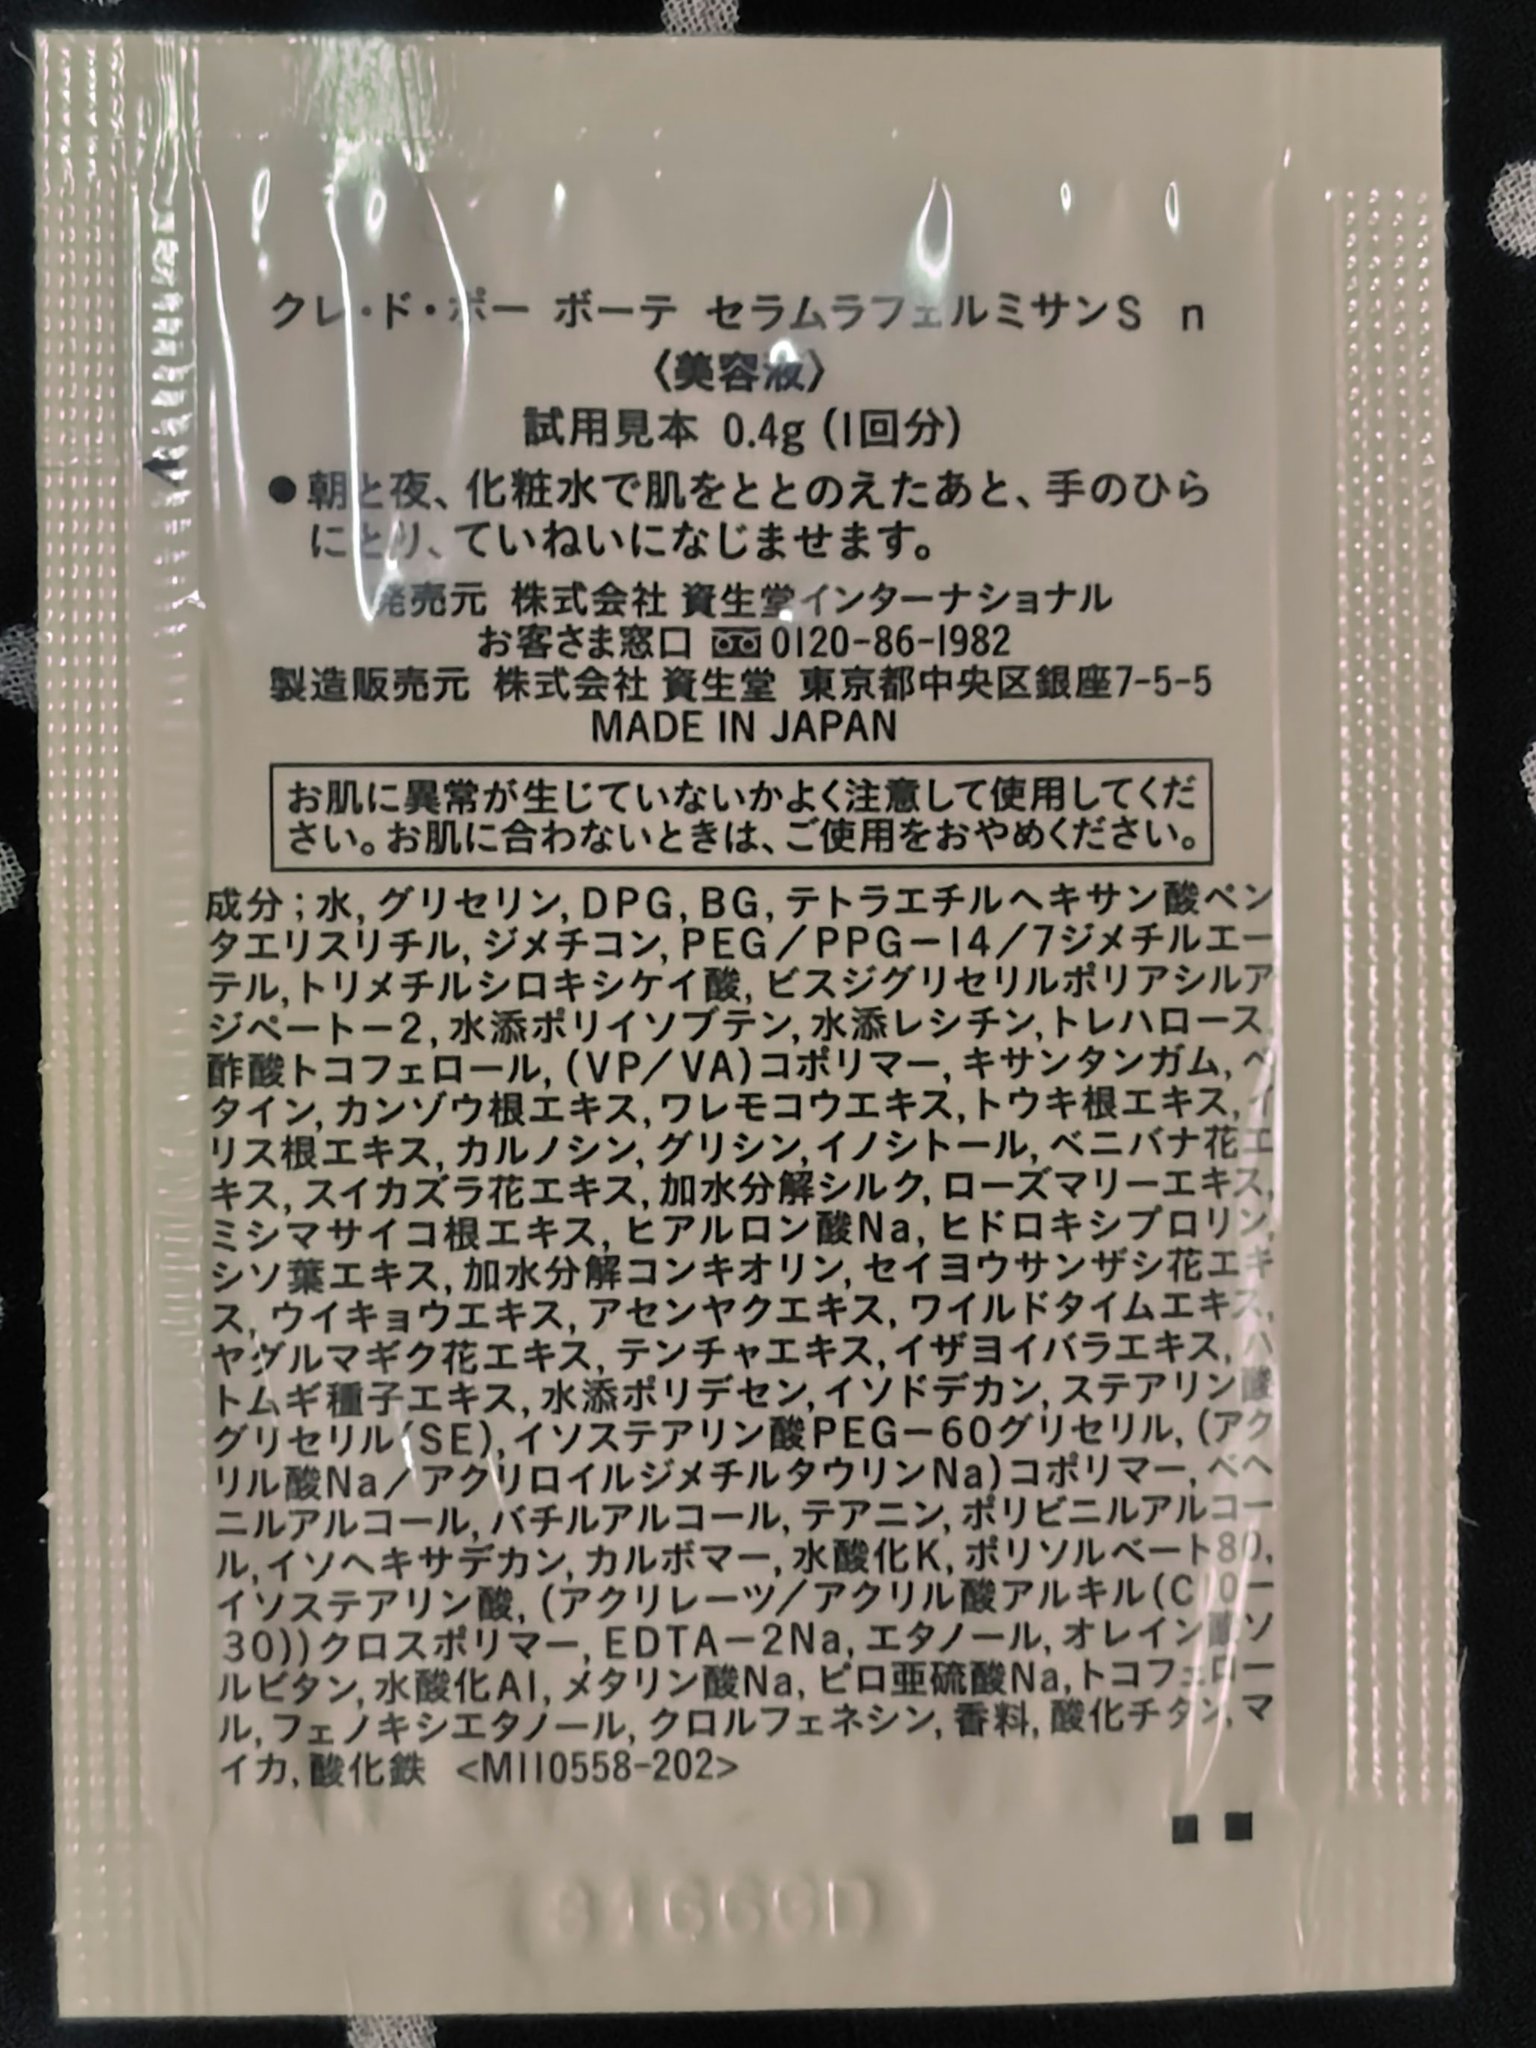 クレ・ド・ポー ボーテ セラムラフェルミサンS n
〈美容液〉
試用見本 0.4g (1回分)
●朝と夜、化粧水で肌をととのえたあと、手のひら
にとり、ていねいになじませます。
発売元 株式会社 資生堂インターナショナル
お客さま窓口 0120-86-1982
製造販売元 株式会社 資生堂 東京都中央区銀座7-5-5
MADE IN JAPAN
お肌に異常が生じていないかよく注意して使用してくだ
さい。お肌に合わないときは、ご使用をおやめください。
成分；水, グリセリン, DPG, BG, テトラエチルヘキサン酸ペン
タエリスリチル, ジメチコン, PEG/PPG-14/7ジメチルエー
テル, トリメチルシロキシケイ酸, ビスジグリセリルポリアシルア
ジペート-2, 水添ポリイソブテン, 水添レシチン, トレハロース,
酢酸トコフェロール, (VP/VA)コポリマー, キサンタンガム, ベ
タイン, カンゾウ根エキス, ワレモコウエキス, トウキ根エキス, イ
リス根エキス, カルノシン, グリシン, イノシトール, ベニバナ花エ
キス, スイカズラ花エキス, 加水分解シルク, ローズマリーエキス,
ミシマサイコ根エキス, ヒアルロン酸Na, ヒドロキシプロリン,
シソ葉エキス, 加水分解コンキオリン, セイヨウサンザシ花エキ
ス, ウイキョウエキス, アセンヤクエキス, ワイルドタイムエキス,
ヤグルマギク花エキス, テンチャエキス, イザヨイバラエキス, ハ
トムギ種子エキス, 水添ポリデセン, イソドデカン, ステアリン酸
グリセリル(SE), イソステアリン酸PEG-60グリセリル, (アク
リル酸Na/アクリロイルジメチルタウリンNa)コポリマー, ベヘ
ニルアルコール, バチルアルコール, テアニン, ポリビニルアルコー
ル, イソヘキサデカン, カルボマー, 水酸化K, ポリソルベート80,
イソステアリン酸, (アクリレーツ/アクリル酸アルキル(C10-
30))クロスポリマー, EDTA-2Na, エタノール, オレイン酸ソ
ルビタン, 水酸化Al, メタリン酸Na, ピロ亜硫酸Na, トコフェロー
ル, フェノキシエタノール, クロルフェネシン, 香料, 酸化チタン, マ
イカ, 酸化鉄 <M110558-202>